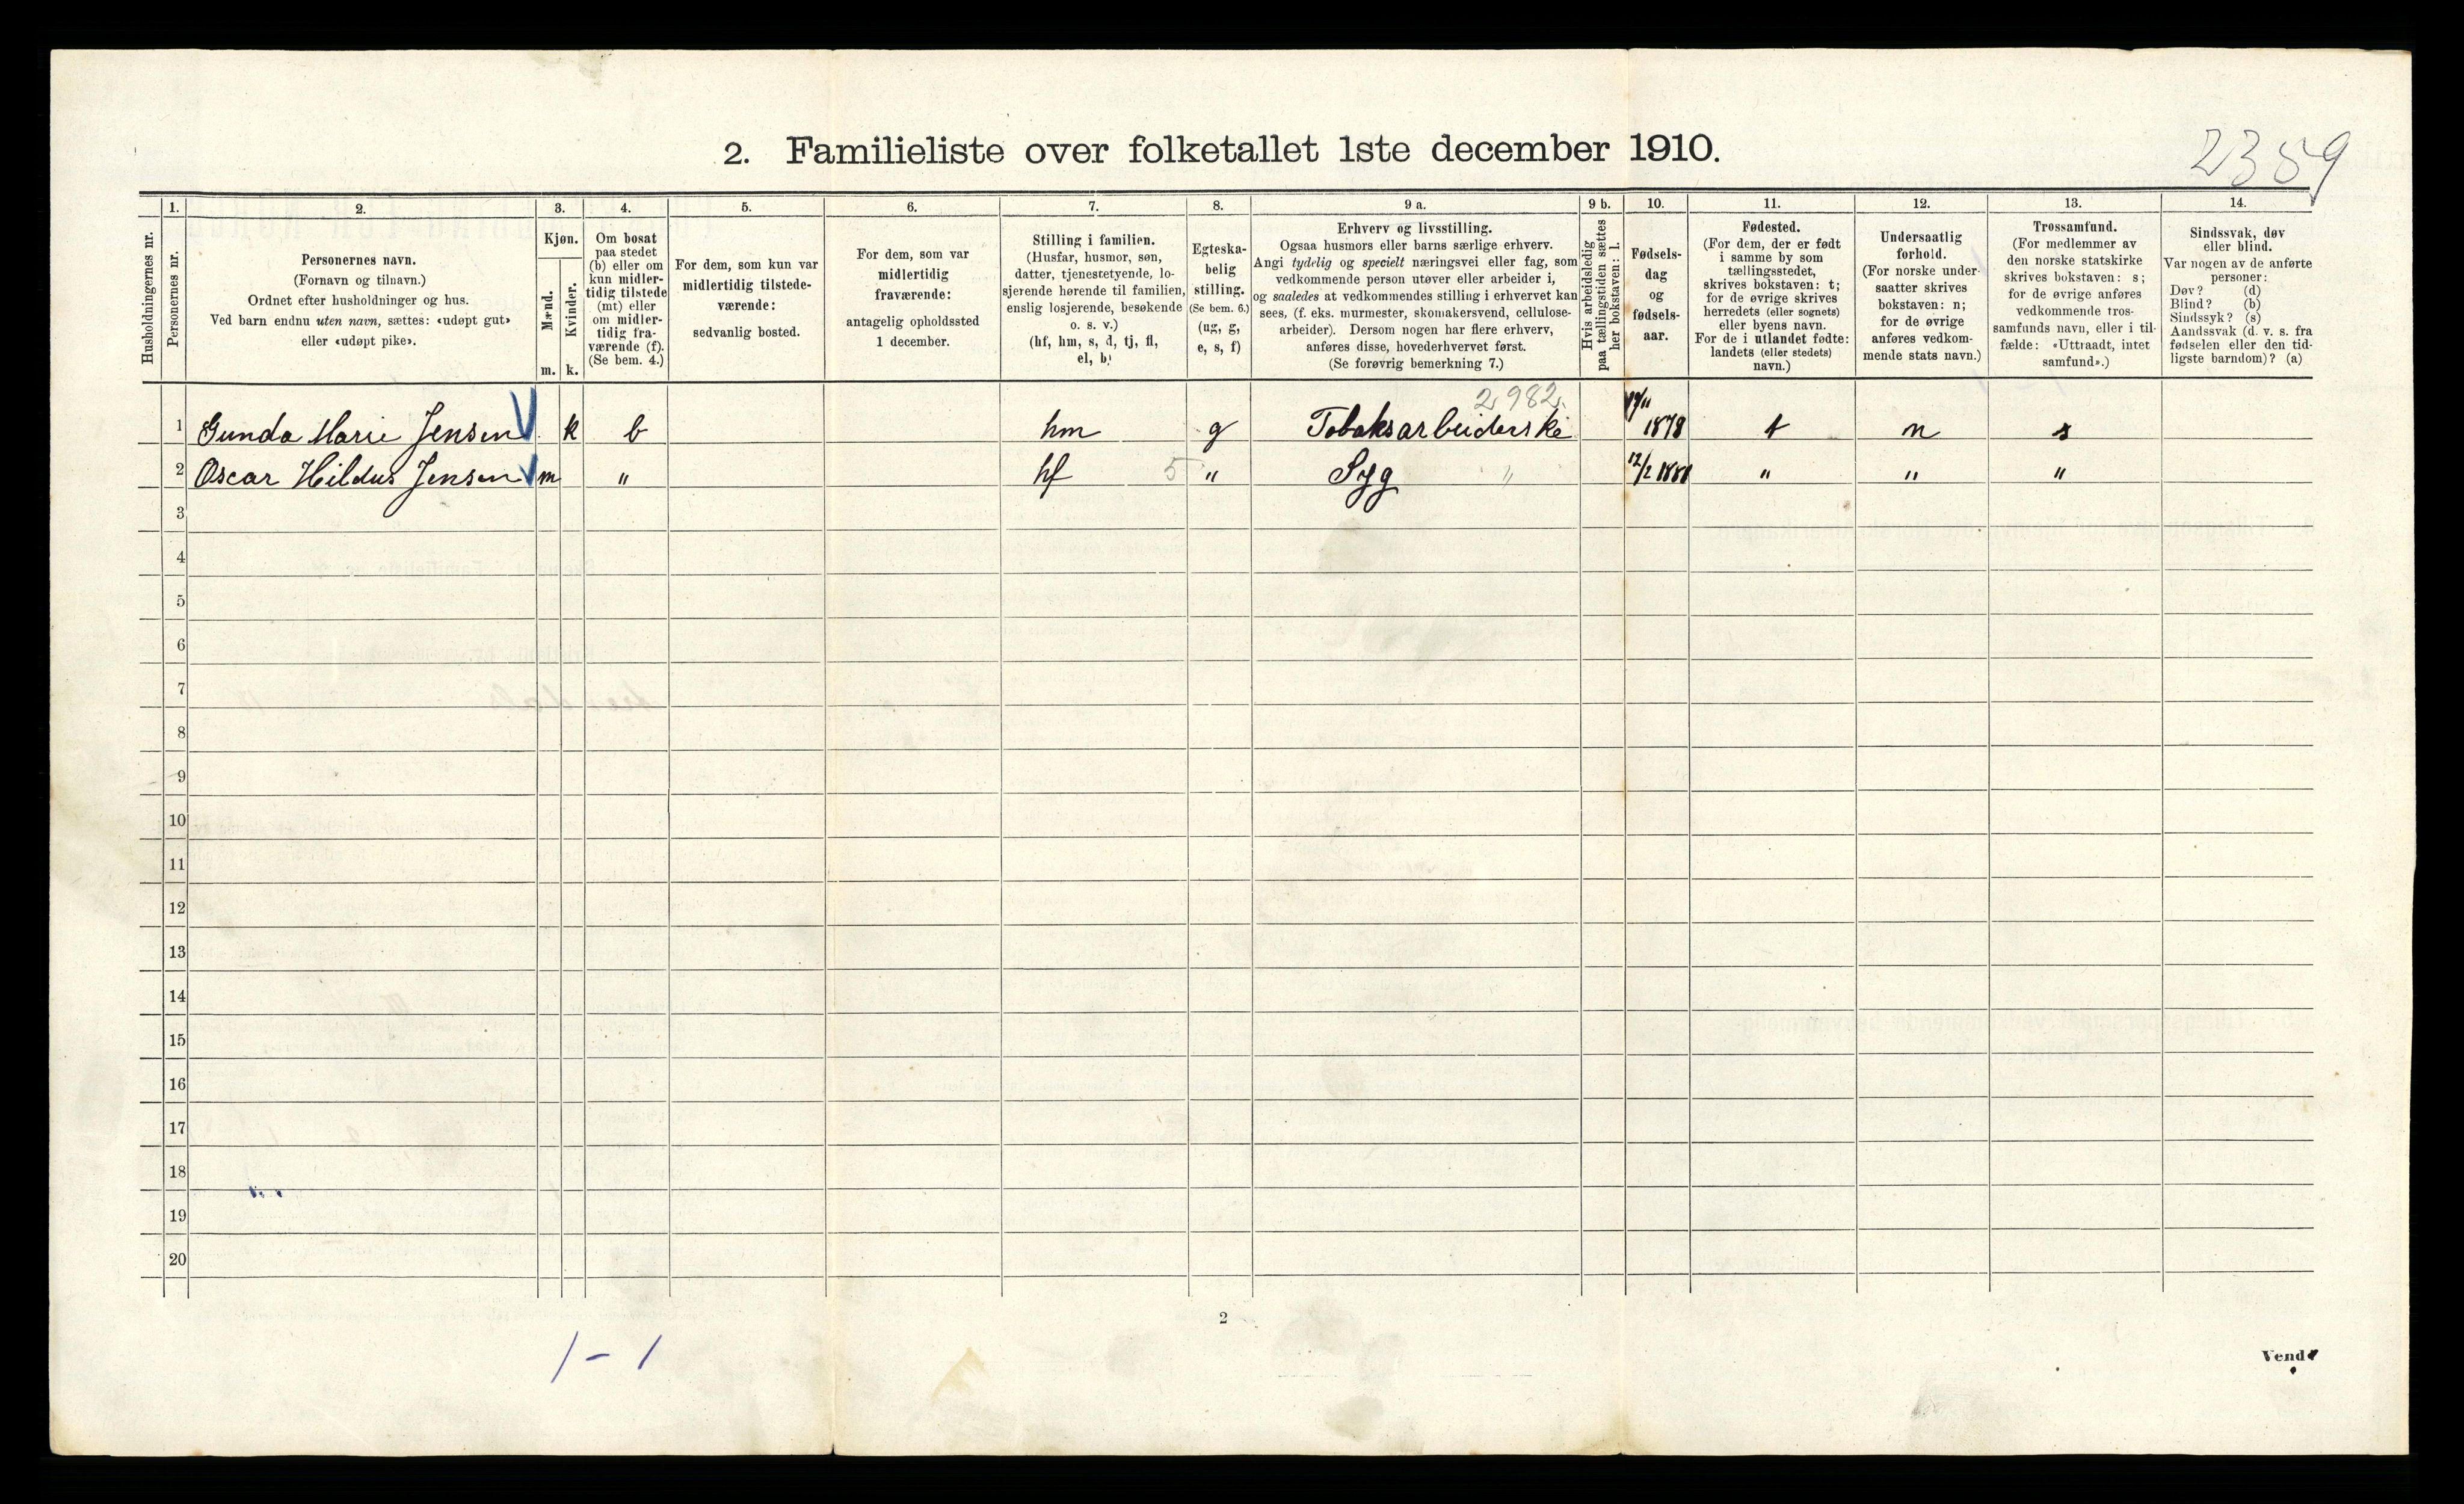 2359
2. Familieliste over folketallet 1ste december 1910.
1. 2. 3. 4. 5. 6. 7. 8. 9 a. 9 b. 10. 11. 12. 13. 14.
Husholdningernes nr.
Personernes nr.
Personernes navn.
(Fornavn og tilnavn.)
Ordnet efter husholdninger og hus.
Ved barn endnu uten navn, sættes: «udøpt gut»
eller «udøpt pike».
Kjøn.
Mænd.
Kvinder.
m. k.
Om bosat
paa stedet
(b) eller om
kun midler-
tidig tilstede
(mt) eller
om midler-
tidig fra-
værende (f).
(Se bem. 4.)
For dem, som kun var
midlertidig tilstede-
værende:
sedvanlig bosted.
For dem, som var
midlertidig
fraværende:
antagelig opholdssted
1 december.
Stilling i familien.
(Husfar, husmor, søn,
datter, tjenestetyende, lo-
sjerende hørende til familien,
enslig losjerende, besøkende
o. s. v.)
(hf, hm, s, d, tj, fl,
el, b)
Egteska-
belig
stilling.
(Se bem. 6.)
(ug, g,
e, s, f)
Erhverv og livsstilling.
Ogsaa husmors eller barns særlige erhverv.
Angi tydelig og specielt næringsvei eller fag, som
vedkommende person utøver eller arbeider i,
og saaledes at vedkommendes stilling i erhvervet kan
sees, (f. eks. murmester, skomakersvend, cellulose-
arbeider). Dersom nogen har flere erhverv,
anføres disse, hovederhvervet først.
(Se forøvrig bemerkning 7.)
Hvis arbeidsledig
paa tællingstiden sættes
her bokstaven: l.
Fødsels-
dag
og
fødsels-
aar.
Fødested.
(For dem, der er født
i samme by som
tællingsstedet,
skrives bokstaven: t;
for de øvrige skrives
herredets (eller sognets)
eller byens navn.
For de i utlandet fødte:
landets (eller stedets)
navn.)
Undersaatlig
forhold.
(For norske under-
saatter skrives
bokstaven: n;
for de øvrige
anføres vedkom-
mende stats navn.)
Trossamfund.
(For medlemmer av
den norske statskirke
skrives bokstaven: s;
for de øvrige anføres
vedkommende tros-
samfunds navn, eller i til-
fælde: «Uttraadt, intet
samfund».)
Sindssvak, døv
eller blind.
Var nogen av de anførte
personer:
Døv? (d)
Blind? (b)
Sindssyk? (s)
Aandssvak (d. v. s. fra
fødselen eller den tid-
ligste barndom)? (a)
2982
1 Gunda Marie Jensen k b hm g Tobaksarbeiderske 1878 t n s
2 Oscar Hildus Jensen m " hf 5 " Syg " 12/2 1881 " " "
3
4
5
6
7
8
9
10
11
12
13
14
15
16
17
18
19
20
2
1 - 1
Vend